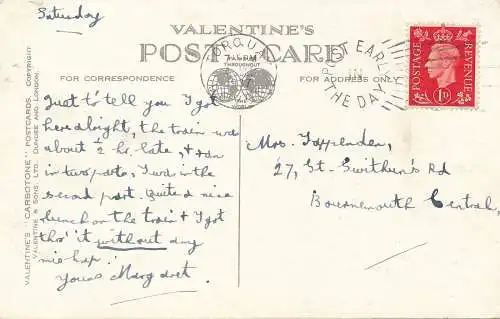 Saturday
VALENTINE'S
POST CARD
FOR CORRESPONDENCE
FOR ADDRESS ONLY
TORQUAY
7 15 PM
THROUGHOUT
POST EARLY
IN
THE DAY
POSTAGE
REVENUE
1D
VALENTINE'S "CARBOTONE" POSTCARDS. COPYRIGHT
VALENTINE & SONS, LTD. DUNDEE AND LONDON.
Just to tell you I got
here alright, the train was
about ½ hr. late, & ran
in two parts, I was in the
second part. Quite a nice
lunch on the train & I got
thro' it without any
mishap!
Yours Margaret
Mrs. Iggulden,
27, St. Swithun's Rd
Bournemouth Central,